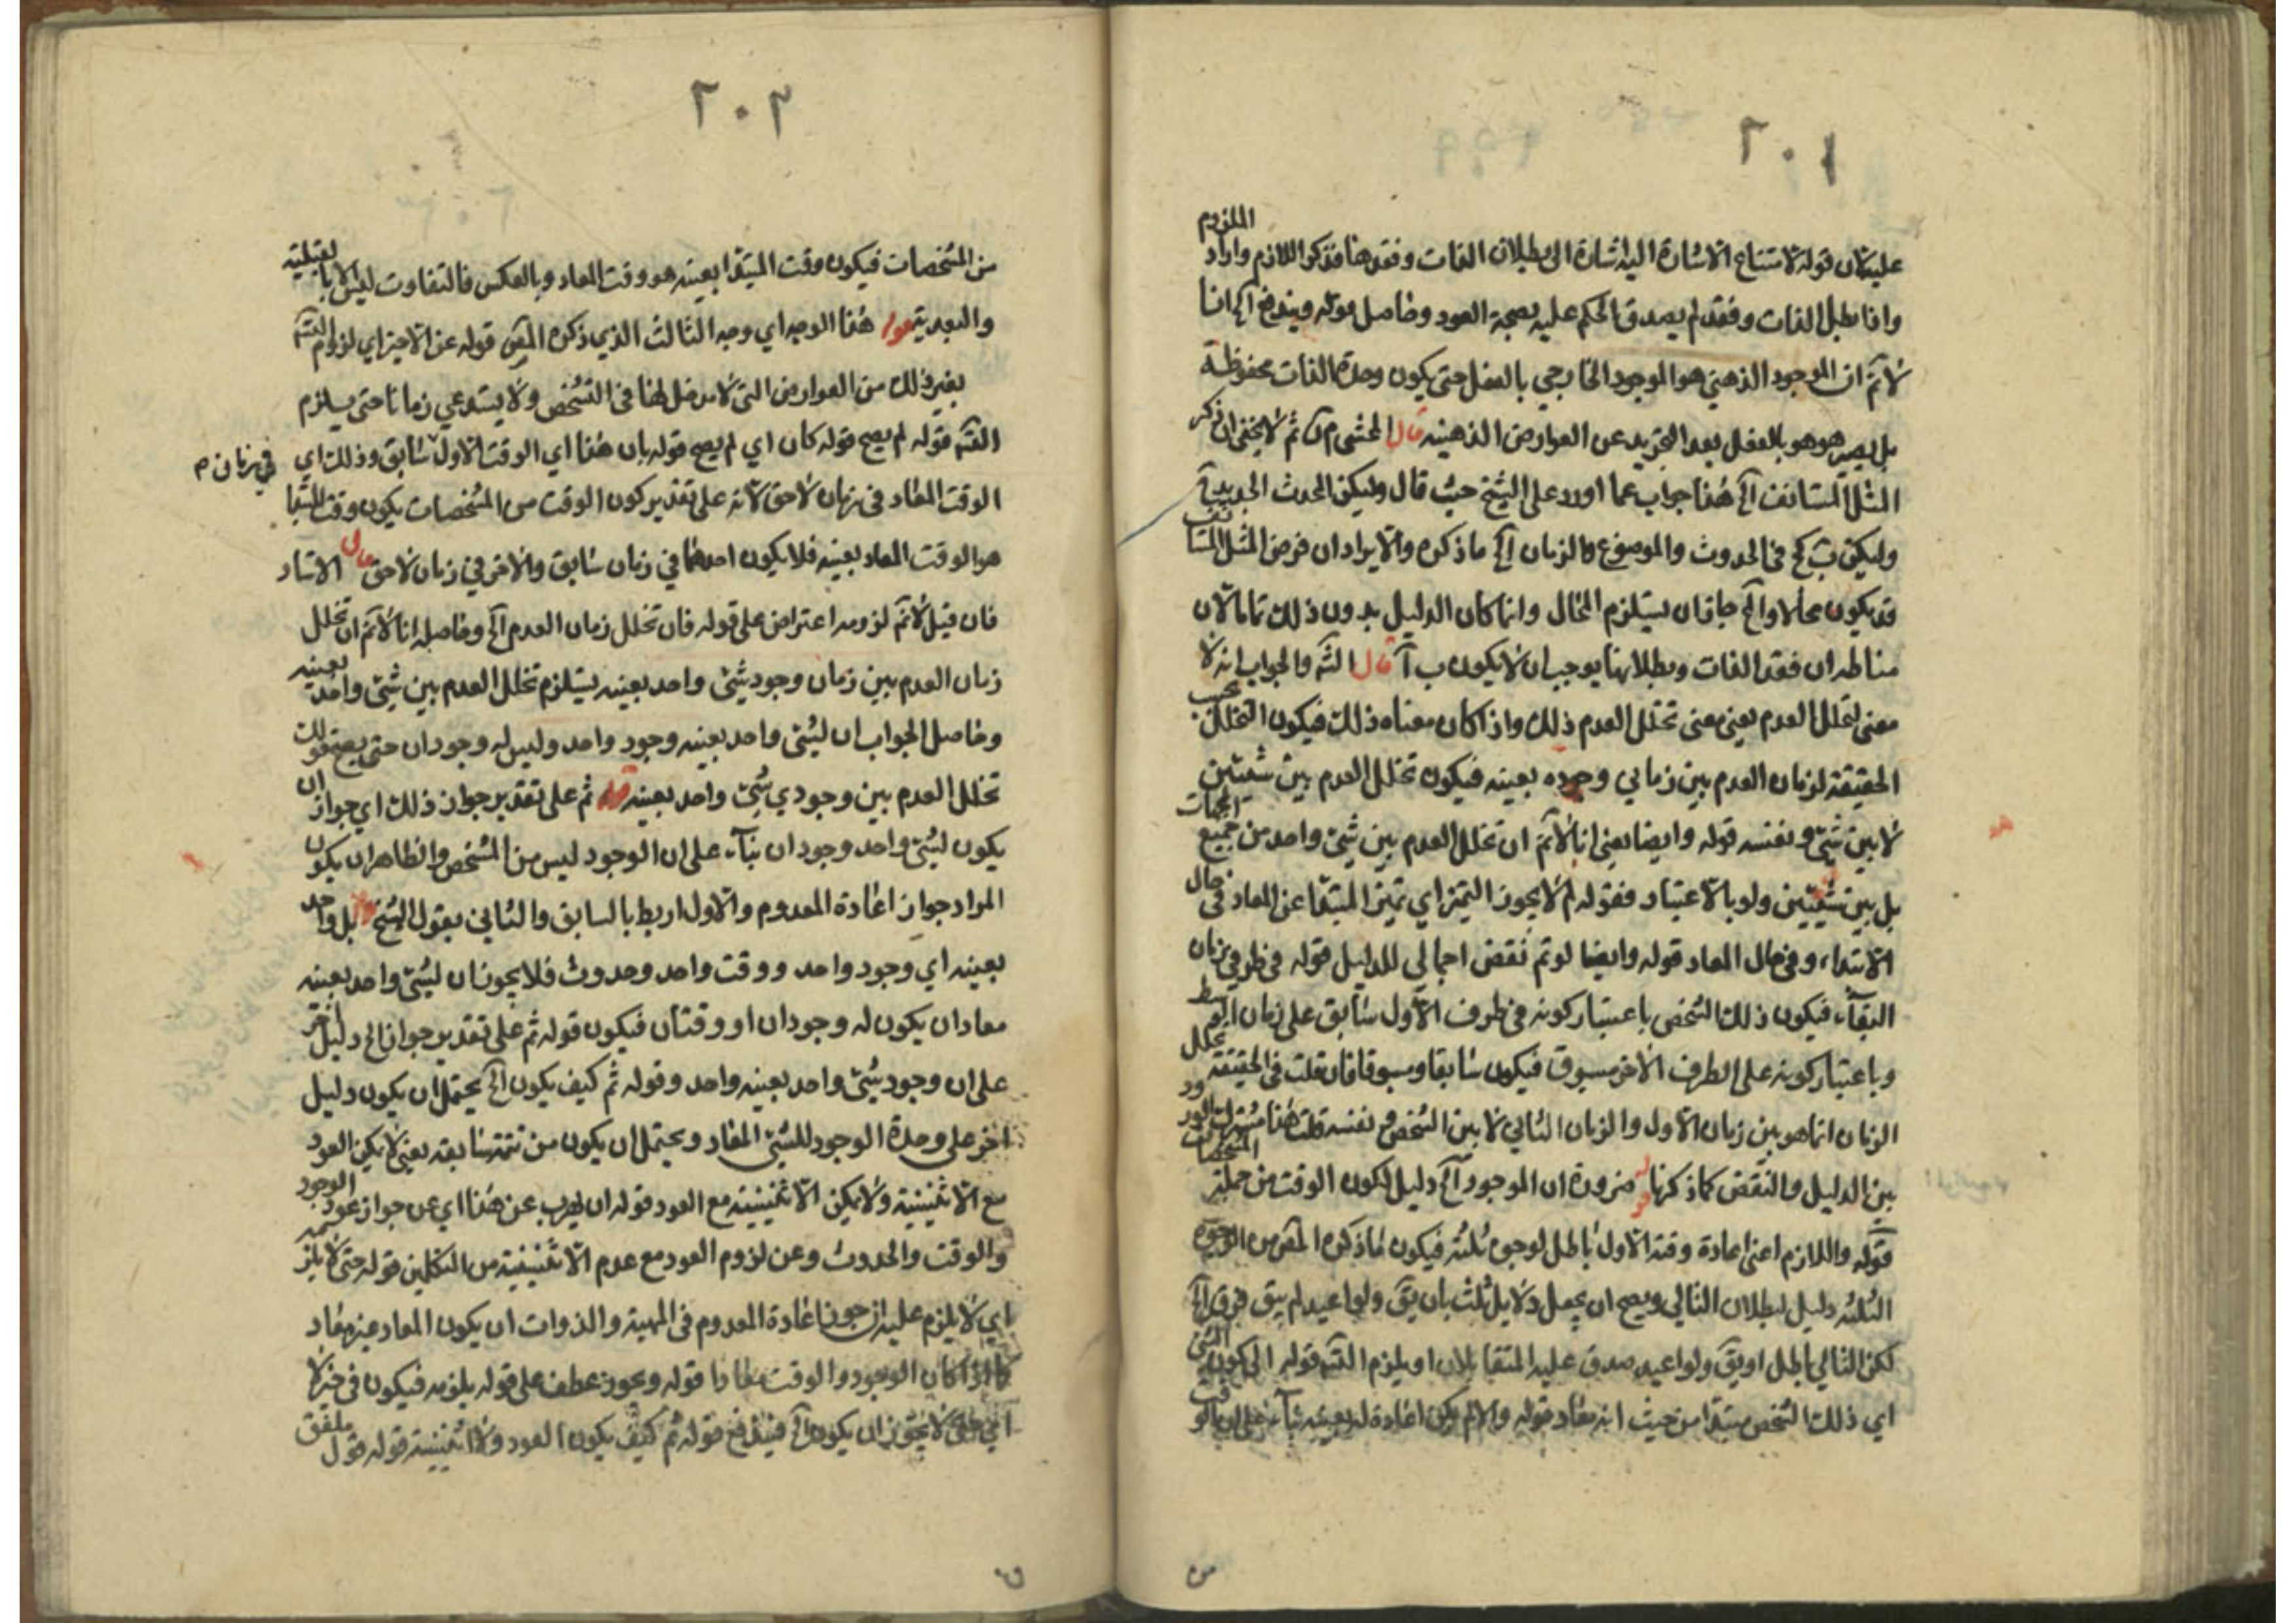 ٢٠١
عليه لان قوله لامتناع الاشارة اليه اشارة الى بطلان الذات وفقدها فذكر اللازم واراد الملزوم
واذا بطل الذات وفقد لم يصدق الحكم عليه بصحة العود وحاصل قوله ويندفع آه انا
لا نم ان الموجود الذهني هو الموجود الخارجي بالفعل حتى يكون وحدة الذات محفوظة
بل يصير هو هو بالفعل بعد التجريد عن العوارض الذهنية قال المحشي م ثم لا يخفى ان ذكر
المثل المستانف آه هذا جواب عما اورد على الشيخ حيث قال وليكن المحدث الجديد
وليكن ب كج في الحدوث والموضوع والزمان آه ما ذكره والايراد ان فرض المثل المستانف
قد يكون محالا وآه جاز ان يستلزم المحال وانما كان الدليل بدون ذلك تاما لان
مناطه ان فقد الذات وبطلانها يوجب ان لا يكون ب آ قال الشم والجواب انه لا
معنى لتخلل العدم يعني معنى تخلل العدم ذلك واذا كان معناه ذلك فيكون التخلل بحسب
الحقيقة لزمان العدم بين زماني وجوده بعينه فيكون تخلل العدم بين شيئين
لا بين شيئ ونفسه قوله وايضا يعني انا لا نم ان تخلل العدم بين شيئ واحد من جميع الجهات
بل بين شيئين ولو بالاعتبار فقوله لم لا يجوز التميز اي تميز المبتدأ عن المعاد في حال
الابتداء وفي حال المعاد قوله وايضا لو تم نقض اجمالي للدليل قوله في طرفي زمان
البقاء فيكون ذلك الشخص باعتبار كونه في طرف الاول سابق على زمان الوسط
وباعتبار كونه على الطرف الاخر مسبوق فيكون سابقا ومسبوقا فان قلت في الحقيقة تخلل
الزمان انما هو بين زمان الاول والزمان الثاني لا بين الشخص ونفسه قلت هذا مشترك الورود
بين الدليل والنقض كما ذكرنا ضرورة ان الموجود آه دليل لكون الوقت من جملة المشخصات
قوله واللازم اعني اعادة وقته الاول باطل لوجوه ثلثة فيكون ما ذكره المص من الوجوه
الثلثة دليل لبطلان التالي ويصح ان يجعل دلايل ثلث بان يق ولو اعيد لم يبق فرق آه
لكن التالي باطل او يق ولو اعيد صدق عليه المتقابلان او يلزم التسم قوله الى كون الشئ
اي ذلك الشخص مبتدا من حيث انه معاد قوله والا لم يكن اعادة له بعينه بناء على ان الوقت
من
٢٠٢
من المشخصات فيكون وقت المبتدا بعينه هو وقت المعاد وبالعكس فالتفاوت ليس الا بالقبلية
والبعدية قوله هذا الوجه اي وجه الثالث الذي ذكره المص قوله عن الاخير اي لزوم التسم
بغير ذلك من العوارض التي لا مدخل لها في التشخص ولا يستدعي زمانا حتى يلزم
التسم قوله لم يصح قوله كان اي لم يصح قوله بان هذا اي الوقت الاول سابق وذلك اي
في زمان م
الوقت المعاد في زمان لاحق لانه على تقدير كون الوقت من المشخصات يكون وقت المبتدا
هو الوقت المعاد بعينه فلا يكون احدهما في زمان سابق والاخر في زمان لاحق قال الاستاد
فان قيل لا نم لزومه اعتراض على قوله فان تخلل زمان العدم آه وحاصله انا لا نم ان تخلل
زمان العدم بين زمان وجود شيئ واحد بعينه يستلزم تخلل العدم بين شيئ واحد بعينه
وحاصل الجواب ان لشئ واحد بعينه وجود واحد وليس له وجودان حتى يصح قولك
تخلل العدم بين وجودي شئ واحد بعينه قوله ثم على تقدير جواز ذلك اي جواز ان
يكون لشئ واحد وجودان بناء على ان الوجود ليس من المشخص والظاهر ان يكون
المراد جواز اعادة المعدوم والاول اربط بالسابق والثاني بقول الشيخ قوله بل واحد
بعينه اي وجود واحد ووقت واحد وحدوث فلا يجوز ان لشئ واحد بعينه
معاد ان يكون له وجودان او وقتان فيكون قوله ثم على تقدير جواز الخ دليل اخر
على ان وجود شئ واحد بعينه واحد وقوله ثم كيف يكون آه يحتمل ان يكون دليل
اخر على وحدة الوجود للشئ المعاد ويحتمل ان يكون من تتمة سابقه يعني لا يمكن العود
مع الاثنينية ولا يمكن الاثنينية مع العود قوله ان يهرب عن هذا اي عن جواز عود الوجود
والوقت والحدوث وعن لزوم العود مع عدم الاثنينية من المتكلمين قوله حتى لا يلزمه
اي لا يلزم عليه ان جوز اعادة المعدوم في المهية والذوات ان يكون المعاد غير معاد
كما اذا كان الوجود والوقت معادا قوله ويجوز عطف على قوله يلزمه فيكون في خبر لا
اي حتى لا يجوز ان يكون آه فيندفع قوله ثم كيف يكون العود ولا اثنينية قوله قول ملفق